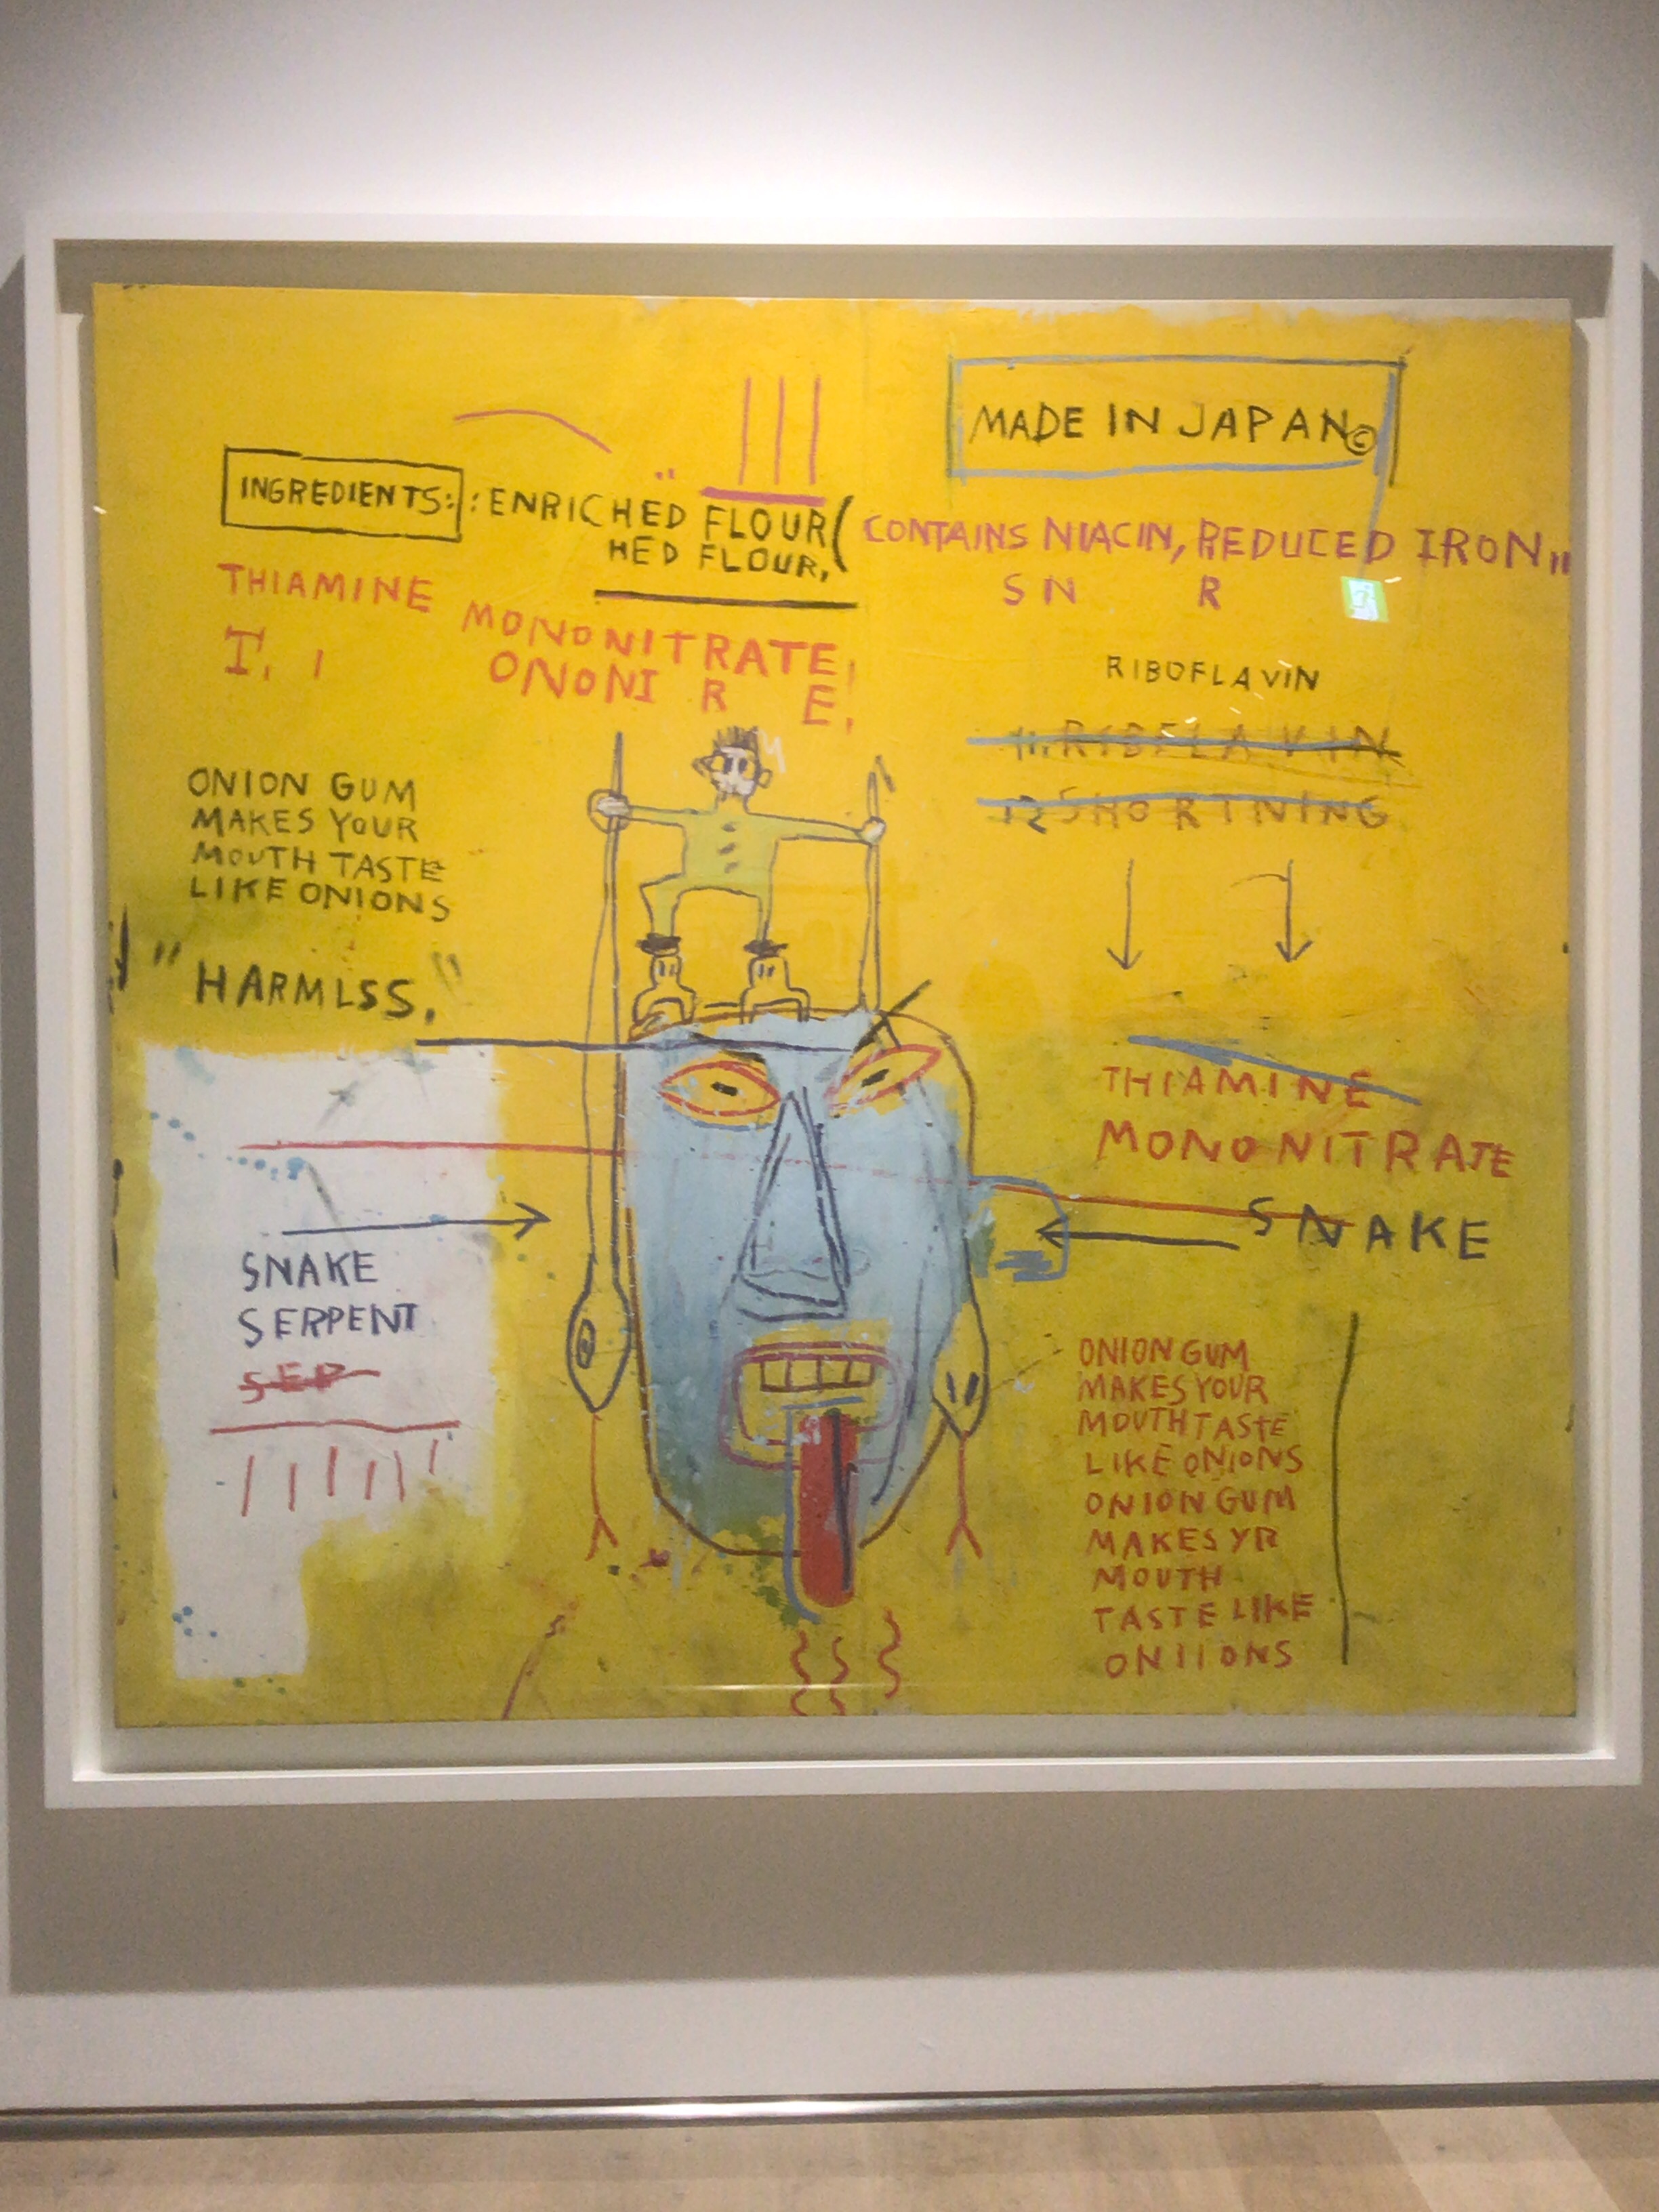 MADE IN JAPAN©
INGREDIENTS: : ENRICHED FLOUR ( CONTAINS NIACIN, REDUCED IRON "
HED FLOUR,
S N R
THIAMINE MONONITRATE,
T, I ONONI R E,
RIBOFLAVIN
11. RIBFLAVIN
12 SHORTNING
ONION GUM
MAKES YOUR
MOUTH TASTE
LIKE ONIONS
"HARMLSS."
THIAMINE
MONONITRATE
SNAKE
SNAKE
SERPENT
SEP
ONION GUM
MAKES YOUR
MOUTH TASTE
LIKE ONIONS
ONION GUM
MAKES YR
MOUTH
TASTE LIKE
ONIIONS